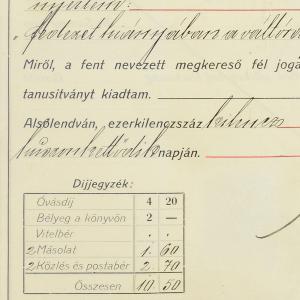 nyertem:
"fedezet hiányában a váltóra
Miről, a fent nevezett megkereső fél jogá
tanusitványt kiadtam.
Alsólendván, ezerkilenczszáz kilencz
huszonkettődik napján.
Díjjegyzék:
Óvásdíj 4 20
Bélyeg a könyvön 2 —
Vitelbér . .
2 Másolat 1. 60
2 Közlés és postabér 2. 70
Összesen 10 50